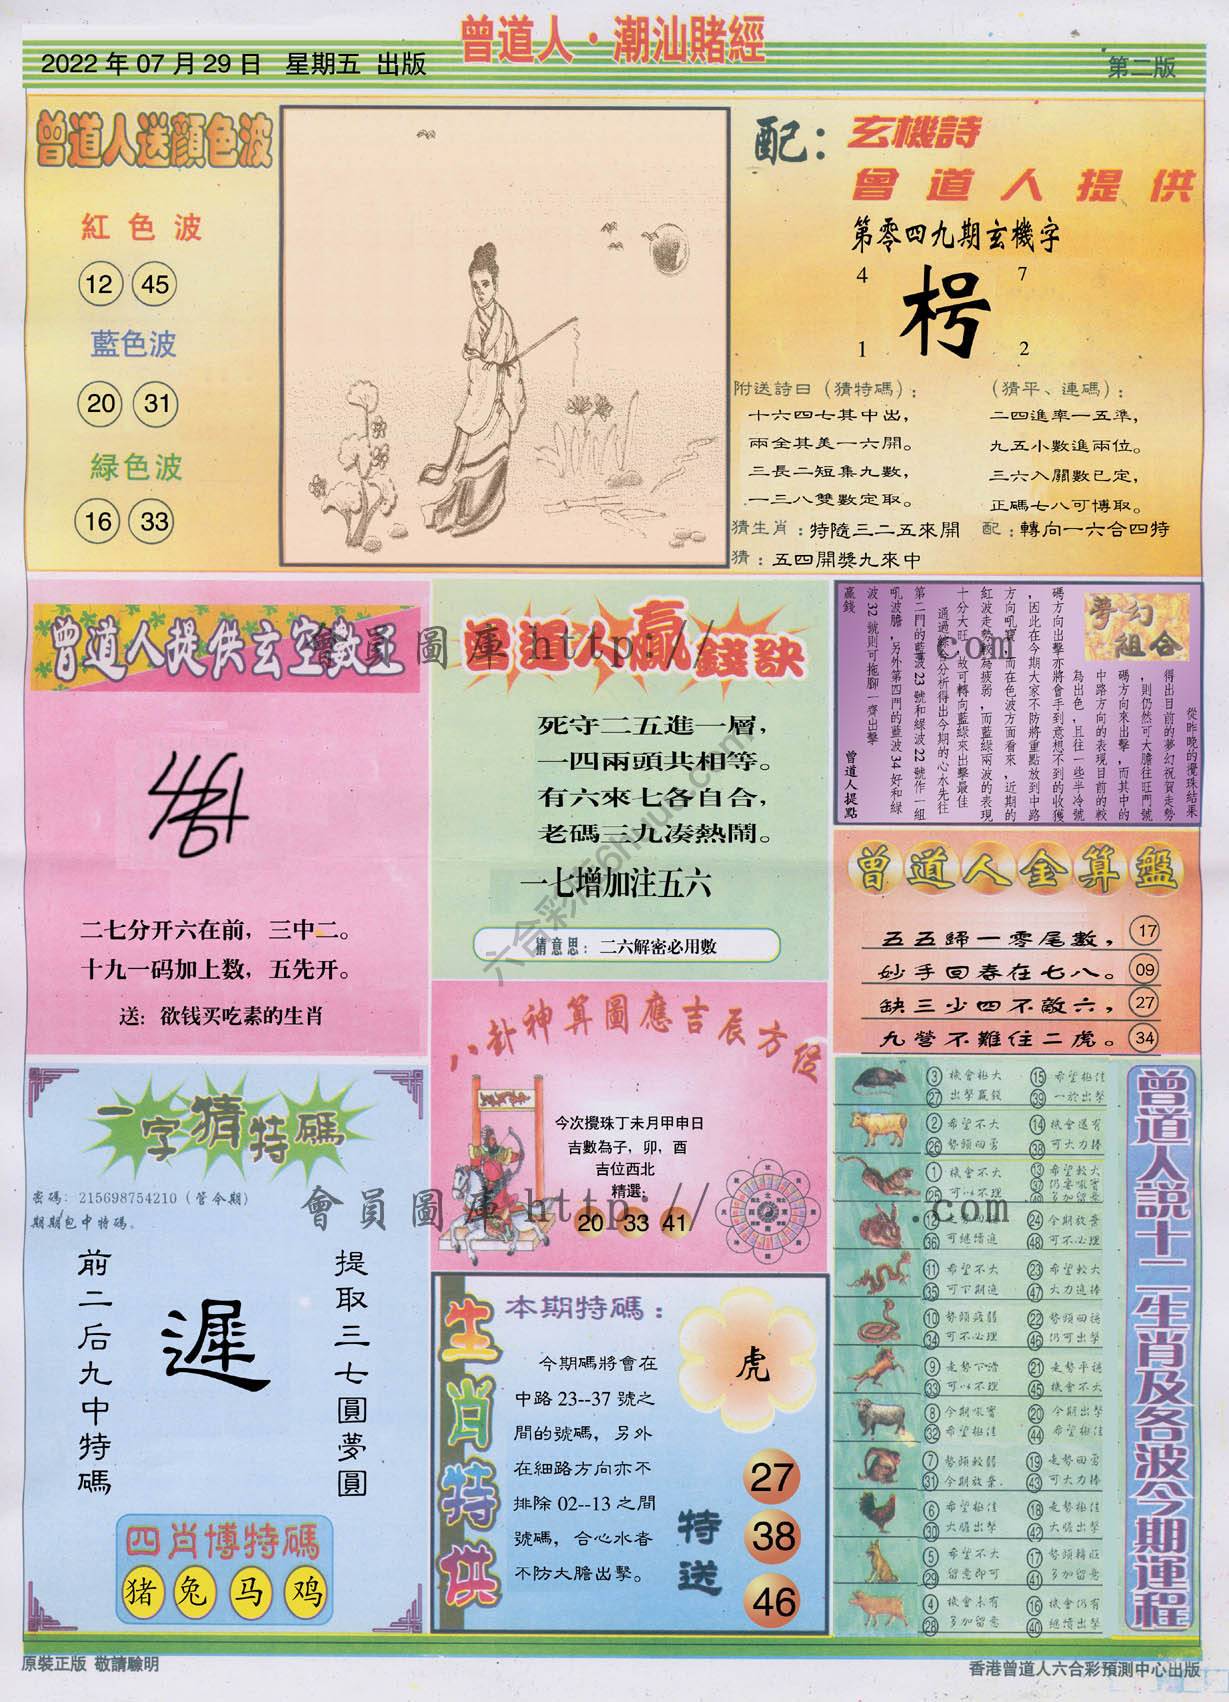 曾道人·潮汕賭經
2022 年 07 月 29 日 星期五 出版
第二版
曾道人送顏色波
紅色波
12 45
藍色波
20 31
緑色波
16 33
配：玄機詩
曾道人提供
第零四九期玄機字
4 7
枵
1 2
附送詩曰（猜特碼）：
十六四七其中出，
兩全其美一六開。
三長二短集九數，
一三八雙數定取。
（猜平、連碼）：
二四進率一五準，
九五小數進兩位。
三六入關數已定，
正碼七八可博取。
猜生肖：特隨三二五來開
配：轉向一六合四特
猜：五四開獎九來中
曾道人提供玄空數王
二七分开六在前，三中二。
十九一码加上数，五先开。
送：欲钱买吃素的生肖
曾道人贏錢訣
死守二五進一層，
一四兩頭共相等。
有六來七各自合，
老碼三九凑熱鬧。
一七增加注五六
猜意思：二六解密必用數
夢幻組合
從昨晚的攪珠結果
得出目前的夢幻祝賀走勢
，則仍然可大膽往旺門號
碼方向來出擊，而其中的
中路方向的表現目前的較
為出色，且往一些半冷號
碼方向出擊亦將會手到意想不到的收獲
，因此在今期大家不防將重點放到中路
方向吼實，而在色波方面看來，近期的
紅波走勢較為疲弱，而藍綠兩波的表現
十分大旺，故可轉向藍綠來出擊最佳
通過綜合分析得出今期的心水先往
第二門的藍波 23 號和綠波 22 號作一組
吼波膽，另外第四門的藍波 34 好和綠
波 32 號則可拖腳一齊出擊
贏錢
曾道人提點
曾道人金算盤
五五歸一零尾數， 17
妙手回春在七八。 09
缺三少四不敵六， 27
九營不難住二虎。 34
八卦神算圖應吉辰方位
今次攪珠丁未月甲申日
吉數為子，卯，酉
吉位西北
精選：
20 33 41
一字猜特碼
密碼：215698754210（管今期）
期期包中特碼。
前二后九中特碼
遲
提取三七圓夢圓
四肖博特碼
猪 兔 马 鸡
生肖特供
本期特碼：
今期碼將會在
中路 23--37 號之
間的號碼，另外
在細路方向亦不
排除 02--13 之間
號碼，合心水者
不防大膽出擊。
虎
特送
27
38
46
曾道人説十二生肖及各波今期運程
3 機會極大 15 希望極佳
27 出擊贏錢 39 一於出擊
2 希望不大 14 機會還有
26 勢頭回勇 38 可大力捧
1 機會不大 13 希望較大
25 可以不理 37 仍要吼實
49 多加留意
12 24 今期放棄
36 可繼續追 48 可不必理
11 希望不大 23 希望較大
35 可下期追 47 大力追捧
10 勢頭疲弱 22 勢頭回穩
34 可不必理 46 仍可出擊
9 走勢下滑 21 走勢平穩
33 可以不理 45 機會不大
8 今期吼實 20 今期出擊
32 希望極佳 44 希望極佳
7 勢頭較弱 19 走勢回勇
31 今期放棄. 43 可大力捧
6 希望極佳 18 走勢極佳
30 大膽出擊 42 大膽出擊
5 希望不大 17 勢頭轉旺
29 留意即可 41 多加留意
4 機會未有 16 機會仍有
28 多加留意 40 繼續出擊
原裝正版 敬請驗明
香港曾道人六合彩預測中心出版
會員圖庫 http:// .com
會員圖庫 http:// .com